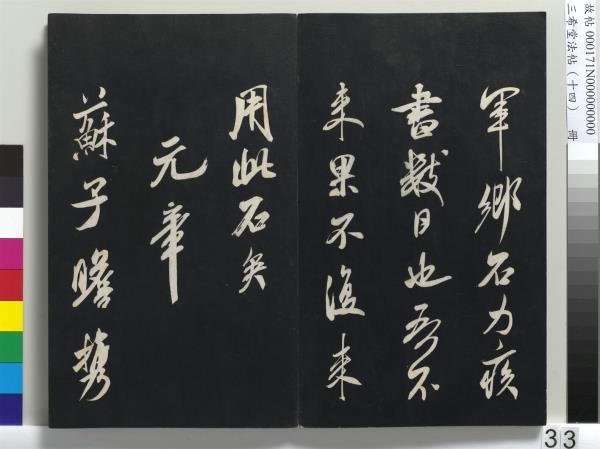 軍鄉石力疾
書數日也吾不
来果不復来
用此石矣
元章
蘇子瞻携
故帖 000171N000000000
三希堂法帖（十四） 冊
33